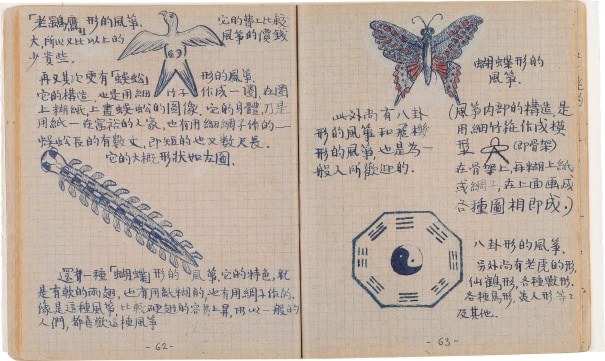 「老鷂鷹」形的風箏. 它的帶工比較
大,所以又比以上的 風箏的價錢
少貴些.
再又其次更有「蜈蚣」 形的風箏.
它的構造,也是用細 竹子 作成一圈,在圈
上糊紙,上畫蜈蚣的圖像.它的身體,乃是
用紙一在富裕的人家,也有用細綢子作的一
蜈蚣長的有數丈,即短的也又數尺長.
它的大概形狀如左圖.
還有一種「蝴蝶」形的 風箏,它的特色,就
是有軟的兩翅,也有用紙糊的,也有用綢子作的.
像是這種風箏比較硬翅的容易上昇,所以一般的
人們,都喜歡這種風箏
-62-
蝴蝶形的
風箏.
此外尚有八卦
形的風箏和飛機
形的風箏,也是為一
般人所歡迎的.
(風箏内部的構造,是
用細竹簽作成模
型 (即骨架)
在骨架上,再糊上紙
或綢子,在上面画成
各種圖相即成.)
八卦形的風箏.
另外尚有老虎的形,
仙鶴形,各種獸形.
各種鳥形,美人形等工
及其他.
-63-